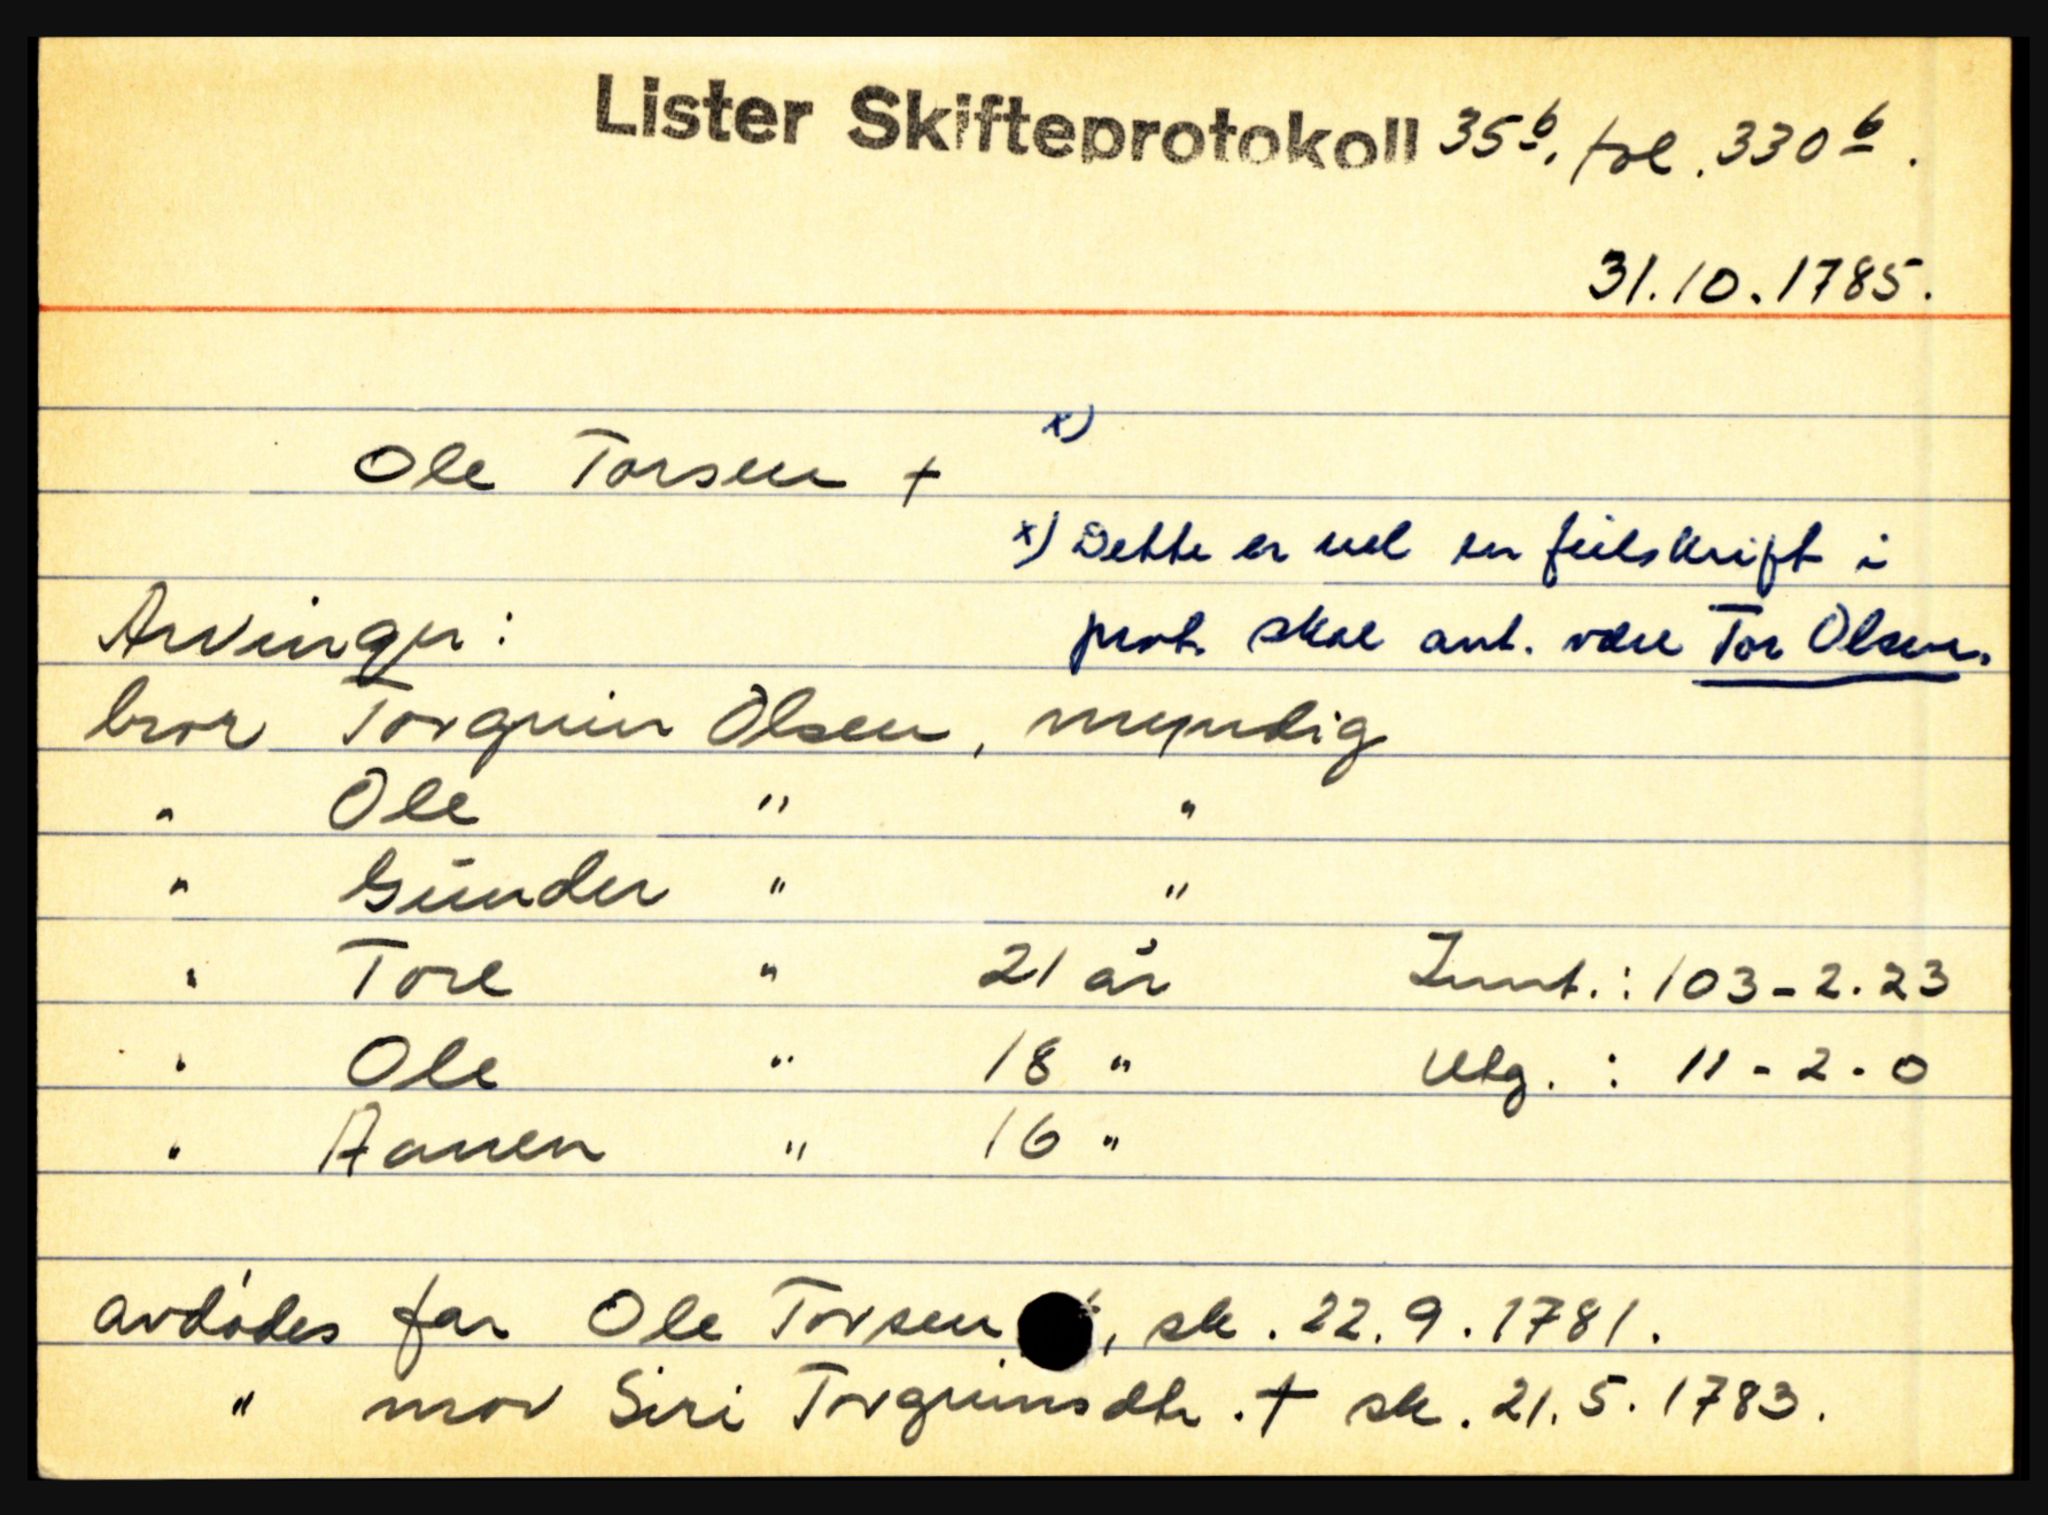 Lister Skifteprotokoll 35b, fol. 330b.
31.10.1785.
Ole Torsen † x)
x) Dette er vel en feilskrift i
prot. skal ant. være Tor Olsen.
Arvinger:
bror Torgrim Olsen, myndig
" Ole " "
" Gunder " "
" Tore " 21 år Innt.: 103-2.23
" Ole " 18 " Utg. : 11-2-0
" Aanen " 16 "
avdødes far Ole Torsen †, sk. 22.9.1781.
" mor Siri Torgrimsdtr. † sk. 21.5.1783.